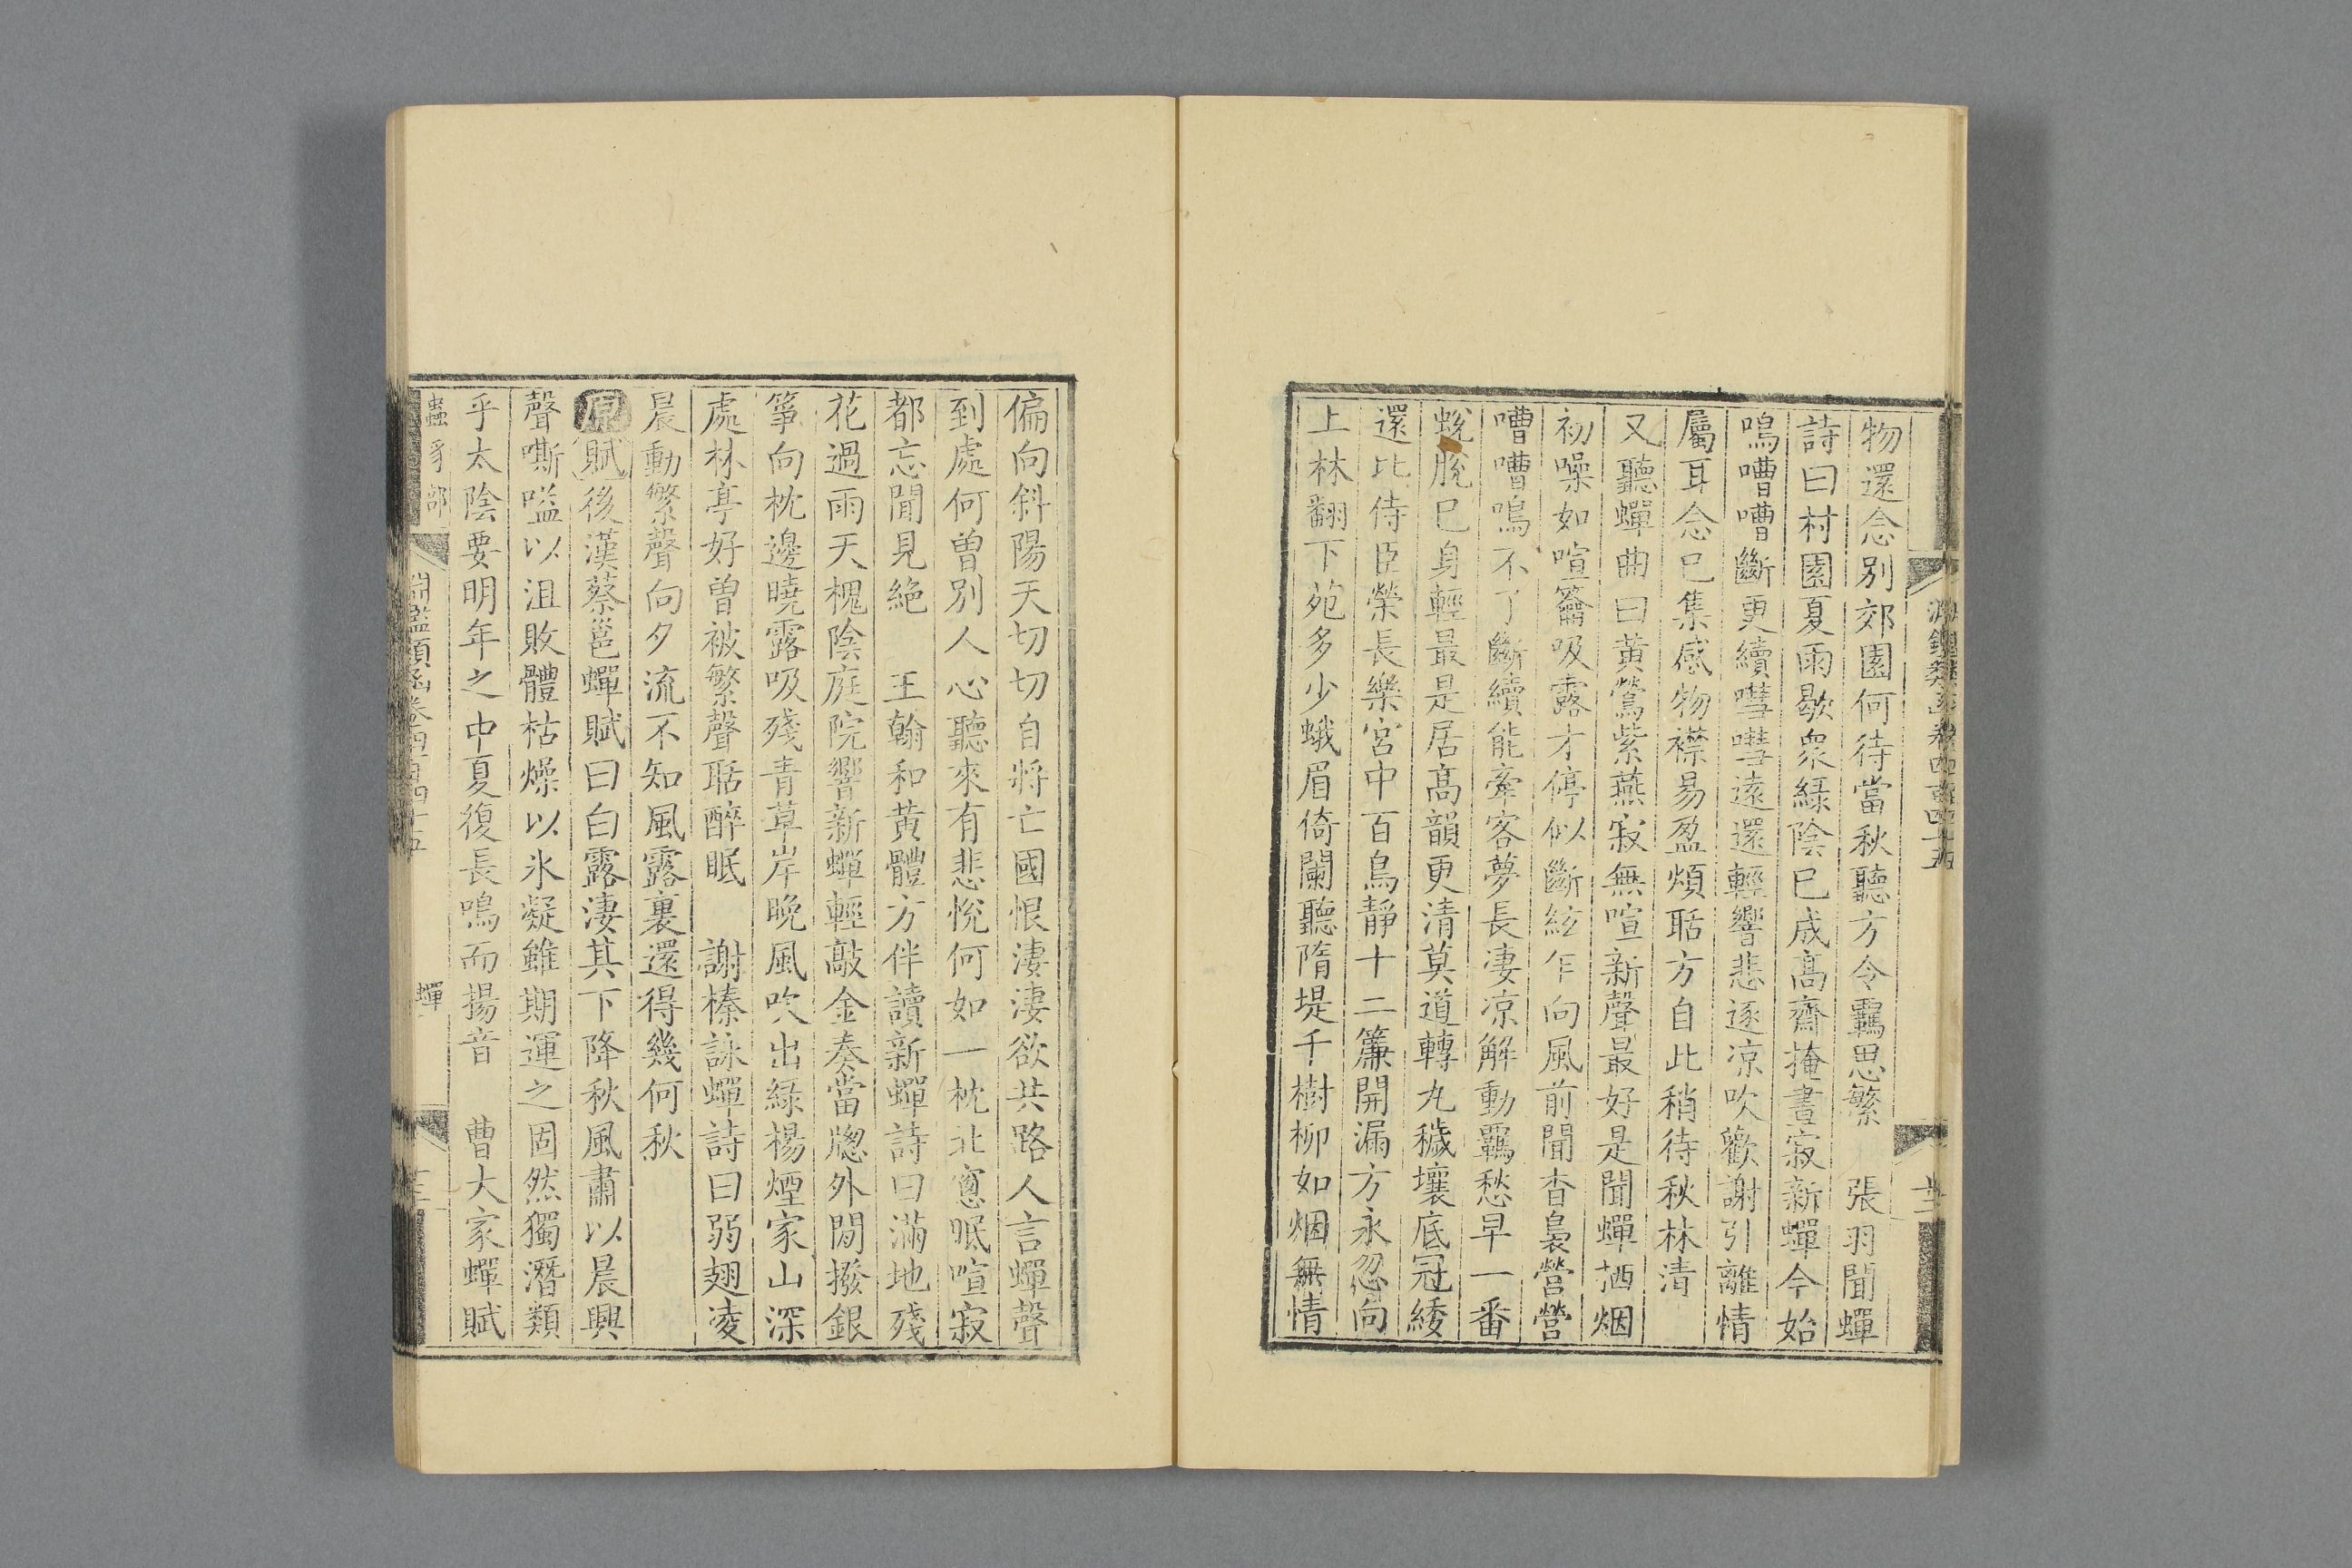 物還念別郊園何待當秋聽方令羈思繁　張羽聞蟬
詩曰村園夏雨歇衆綠陰已成高齋掩晝寂新蟬今始
鳴嘈嘈斷更續嘒嘒遠還輕響悲逐凉吹歡謝引離情
屬耳念已集感物襟易盈煩聒方自此稍待秋林清
又聽蟬曲曰黃鶯紫燕寂無喧新聲最好是聞蟬栖烟
初噪如喧籥吸露才停似斷絃乍向風前聞杳裊營營
嘈嘈鳴不了斷續能牽客夢長淒凉解動羈愁早一番
蛻脫已身輕最是居高韻更清莫道轉丸穢壤底冠緌
還比侍臣榮長樂宮中百鳥靜十二簾開漏方永忽向
上林翻下苑多少蛾眉倚闌聽隋堤千樹柳如烟無情
偏向斜陽天切切自將亡國恨淒淒欲共路人言蟬聲
到處何曽別人心聽來有悲悅何如一枕北窻眠喧寂
都忘聞見絶　王翰和黃體方伴讀新蟬詩曰滿地殘
花過雨天槐陰庭院響新蟬輕敲金奏當牕外閒撥銀
箏向枕邊曉露吸殘青草岸晚風吹出綠楊煙家山深
處林亭好曽被繁聲聒醉眠　謝榛詠蟬詩曰弱翅凌
晨動繁聲向夕流不知風露裏還得幾何秋
原賦後漢蔡邕蟬賦曰白露淒其下降秋風肅以晨興
聲嘶嗌以沮敗體枯燥以氷凝雖期運之固然獨潛類
乎太陰要明年之中夏復長鳴而揚音　曹大家蟬賦
蟲豸部　淵鑑類函卷四百四十五　蟬